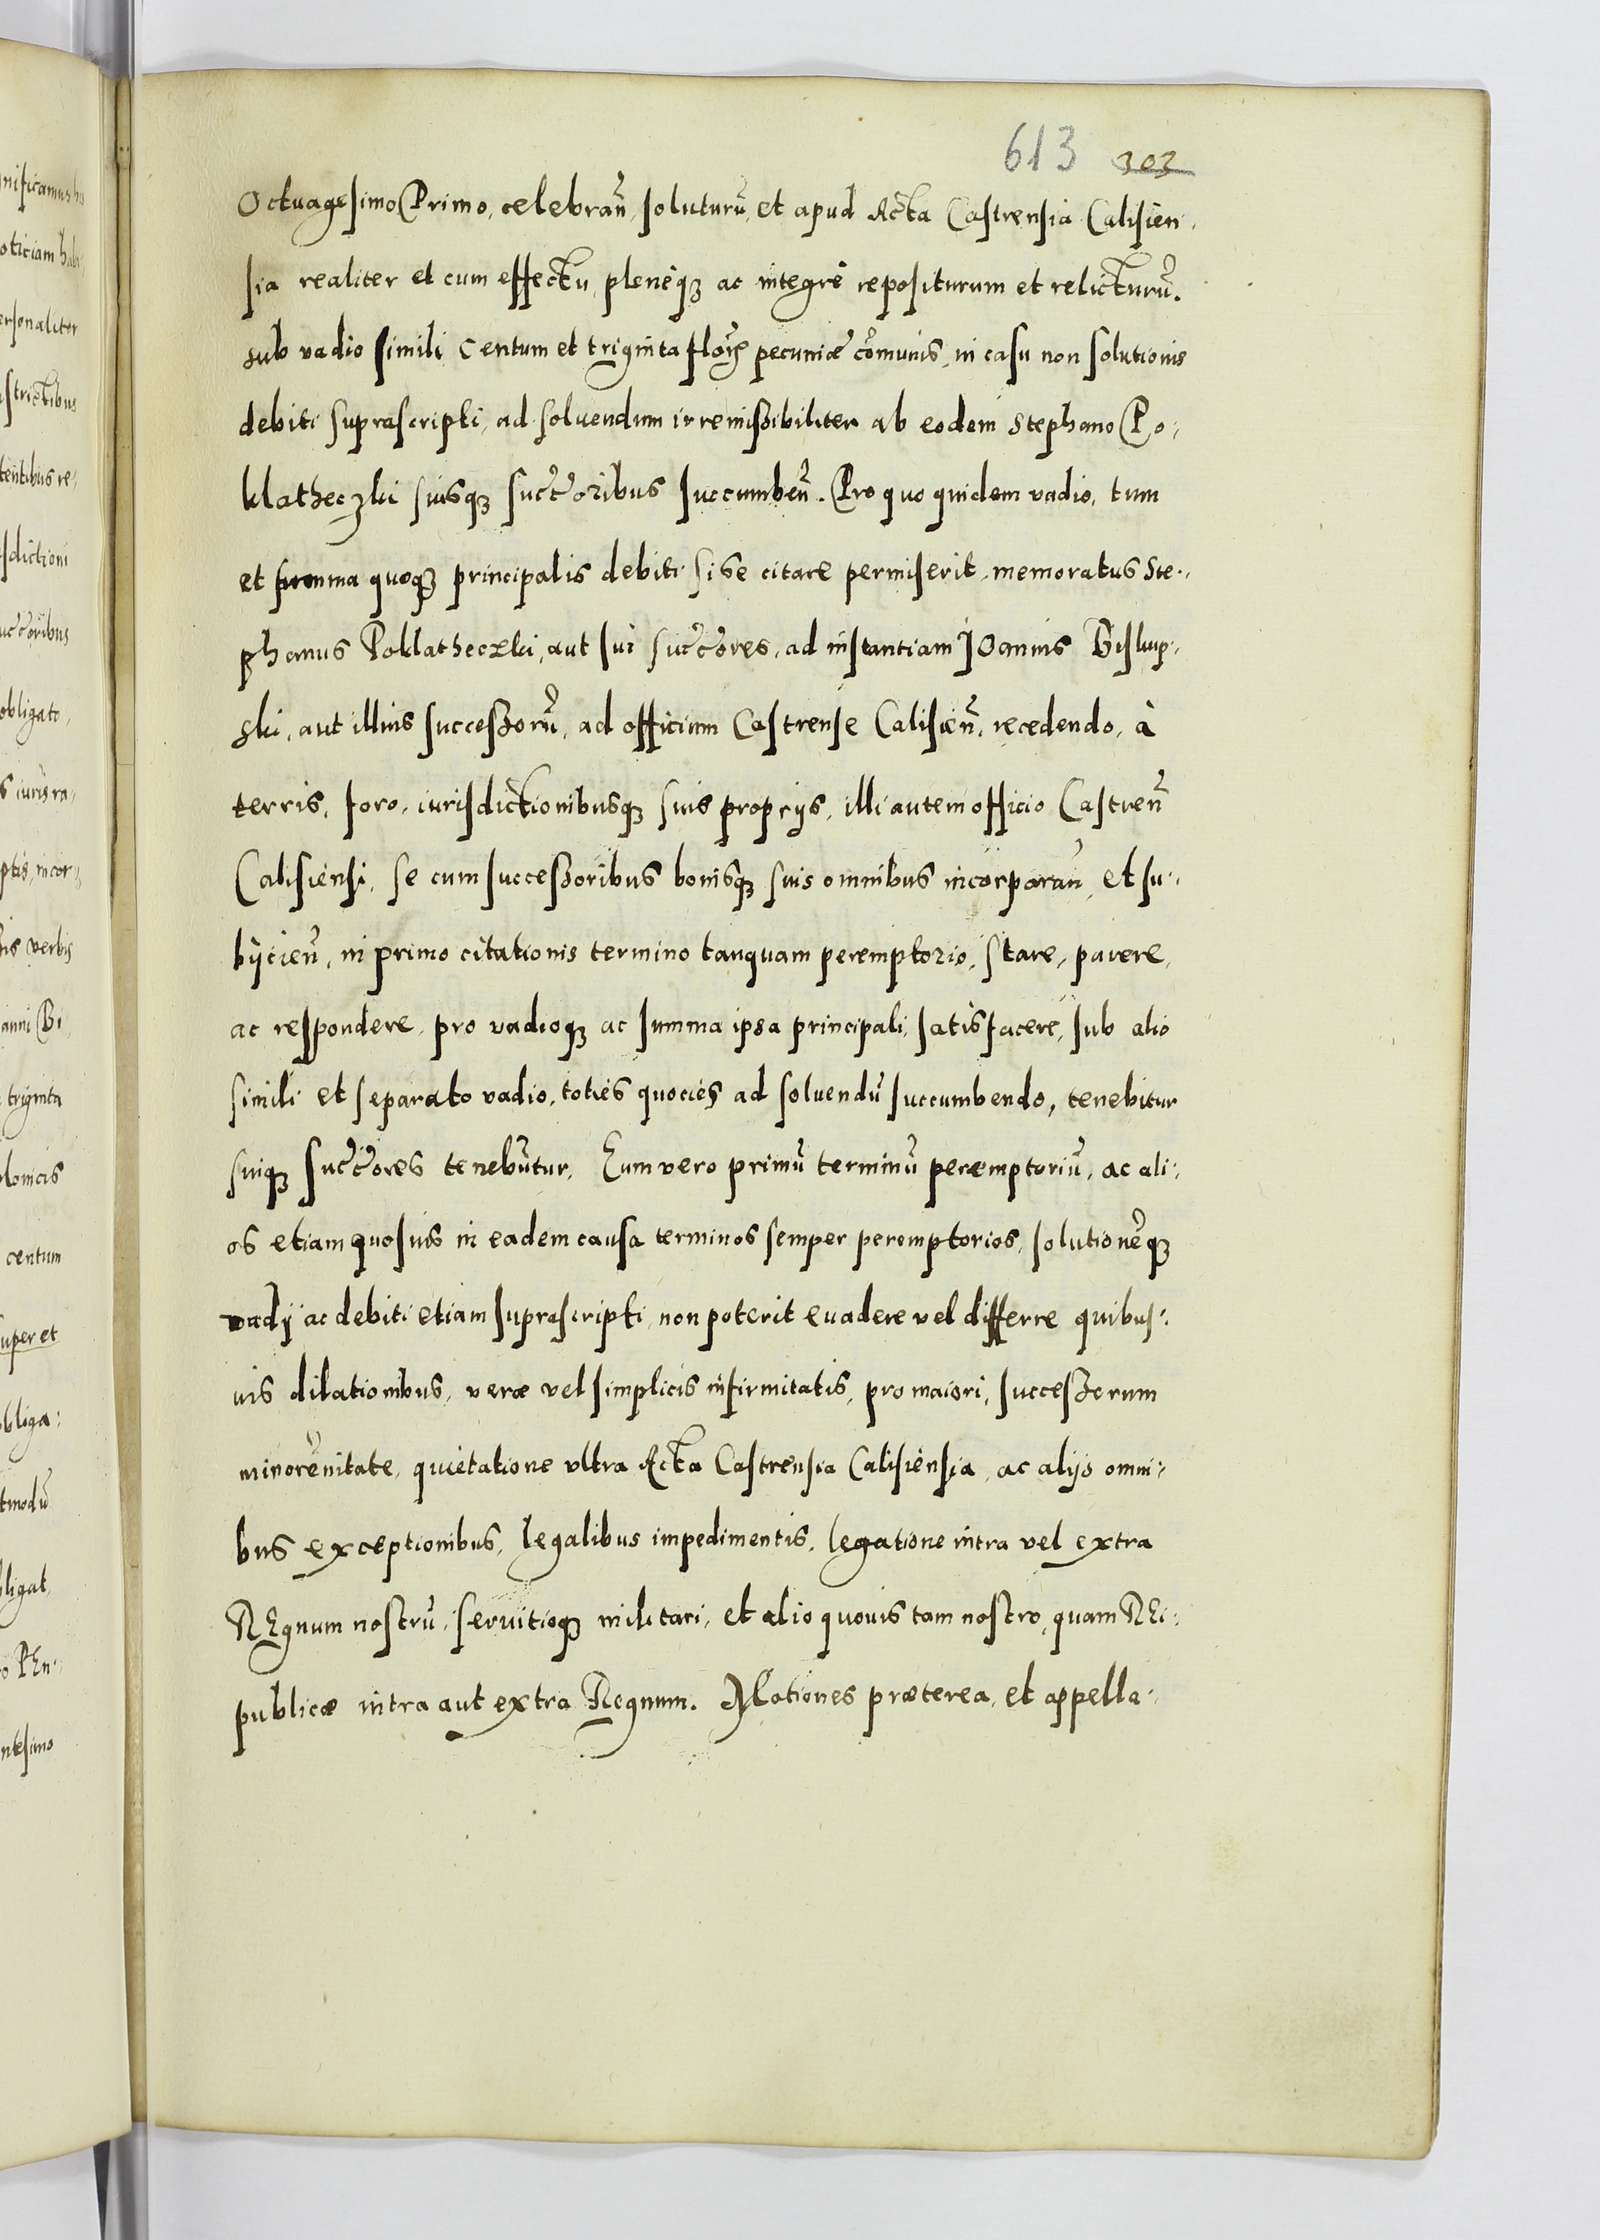 613 303
Octuagesimo Primo, celebrañ, soluturũ, et apud Acta Castrensia Calisien,
sia realiter et cum effectu, pleneq3 ac integre repositurum et relicturũ.
sub vadio simili Centum et triginta flor̃ pecuniæ cõmunis, in casu non solutionis
debiti suprascripti, ad soluendum irremissibiliter ab eodem Stephano Po-
klatheczki suisq3 succ̃oribus succumbeñ. Pro quo quidem vadio, tum
et summa quoq3 principalis debiti si se citare permiserit, memoratus Ste-
phanus Poklatheczki, aut sui succ̃ores, ad instantiam Joannis Biskup-
ski, aut illius successorũ, ad officium Castrense Calisieñ, recedendo, à
terris, foro, iurisdictionibusq3 suis proprijs, illi autem officio Castreñ
Calisiensi, se cum successoribus bonisq3 suis omnibus incorporañ, et su-
bijcieñ, in primo citationis termino tanquam peremptorio, stare, parere,
ac respondere, pro vadioq3 ac summa ipsa principali, satisfacere, sub alio
simili et separato vadio, toties quocies ad soluendũ succumbendo, tenebitur
suiq3 succ̃ores tenebũtur. Eum vero primũ terminũ peremptoriũ, ac ali-
os etiam quosuis in eadem causa terminos semper peremptorios, solutionẽq3
vadij ac debiti etiam suprascripti, non poterit euadere vel differre quibus-
uis dilationibus, veræ vel simplicis infirmitatis, pro maiori, successorum
minorẽnitate, quietatione vltra Acta Castrensia Calisiensia, ac alijs omni-
bus exceptionibus, legalibus impedimentis, legatione intra vel extra
REgnum nostrũ, seruitioq3 militari, et alio quouis tam nostro, quam REi-
publicæ intra aut extra Regnum. Motiones præterea, et appella-